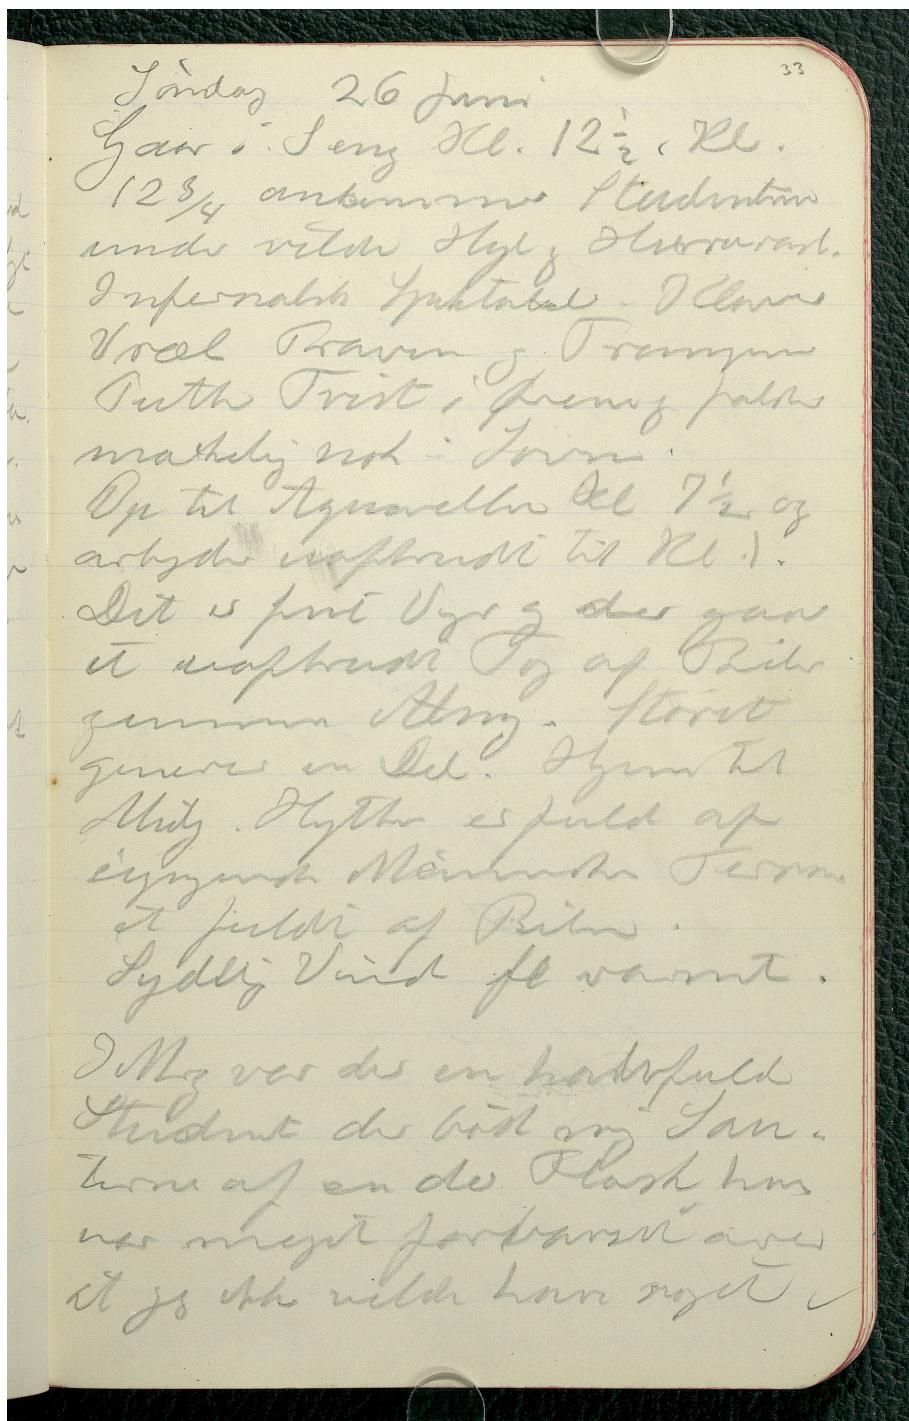 33
Søndag 26 Juni
Gaar i Seng Kl. 12½. Kl.
12¾ ankommer Studenterne
under vilde Hyl og Hurraraab.
Infernalsk Spektakel. Klaver
Vræl og
Putter Tvist i Ørene og falder
mærkelig nok i Søvn.
Op til Aquarellen Kl 7½ og
arbejder uafbrudt til Kl 1.
Det er fint Vejr og der gaar
et uafbrudt Tog af Biler
gennem Støvet
generer en Del. Hjem til
Midg. Hytten er fuld af
Mennesker
et fuldt af Biler.
Sydlig Vind fl varmt.
I Mrg var der en halvfuld
Student der bød mig Sau-
terne af en Flask han
var meget forbavset over
at jeg ikke vilde have noget